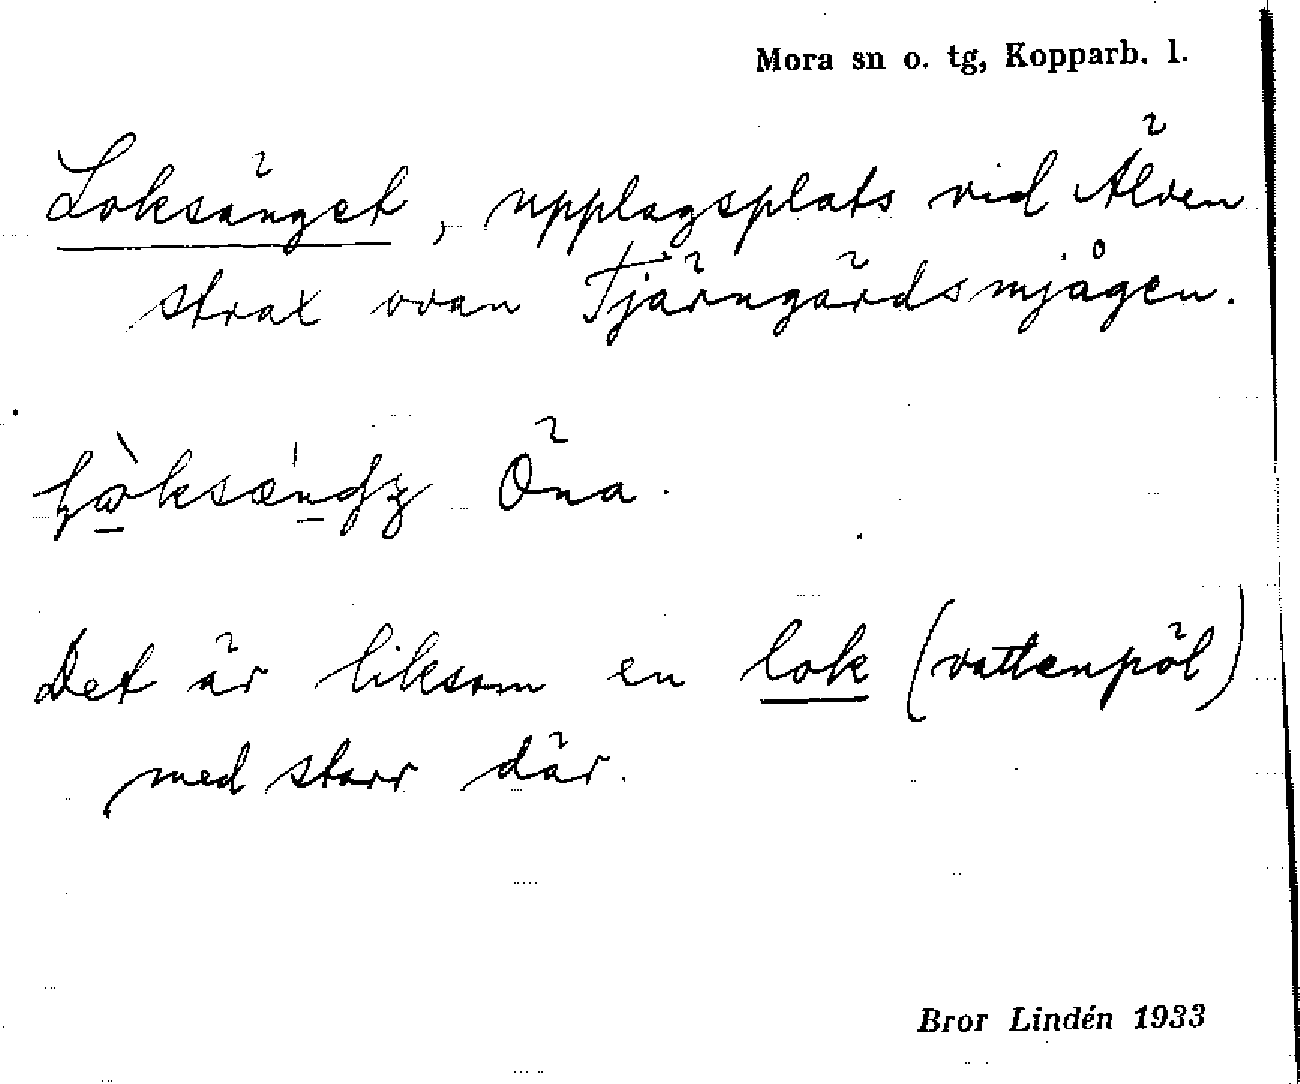 Mora sn o. tg, Kopparb. l.
Loksänget, upplagsplats vid Älven
strax ovan Tjärngärdsmjågen.
Öna.
Det är liksom en lok (vattenpöl)
med starr där.
Bror Lindén 1933